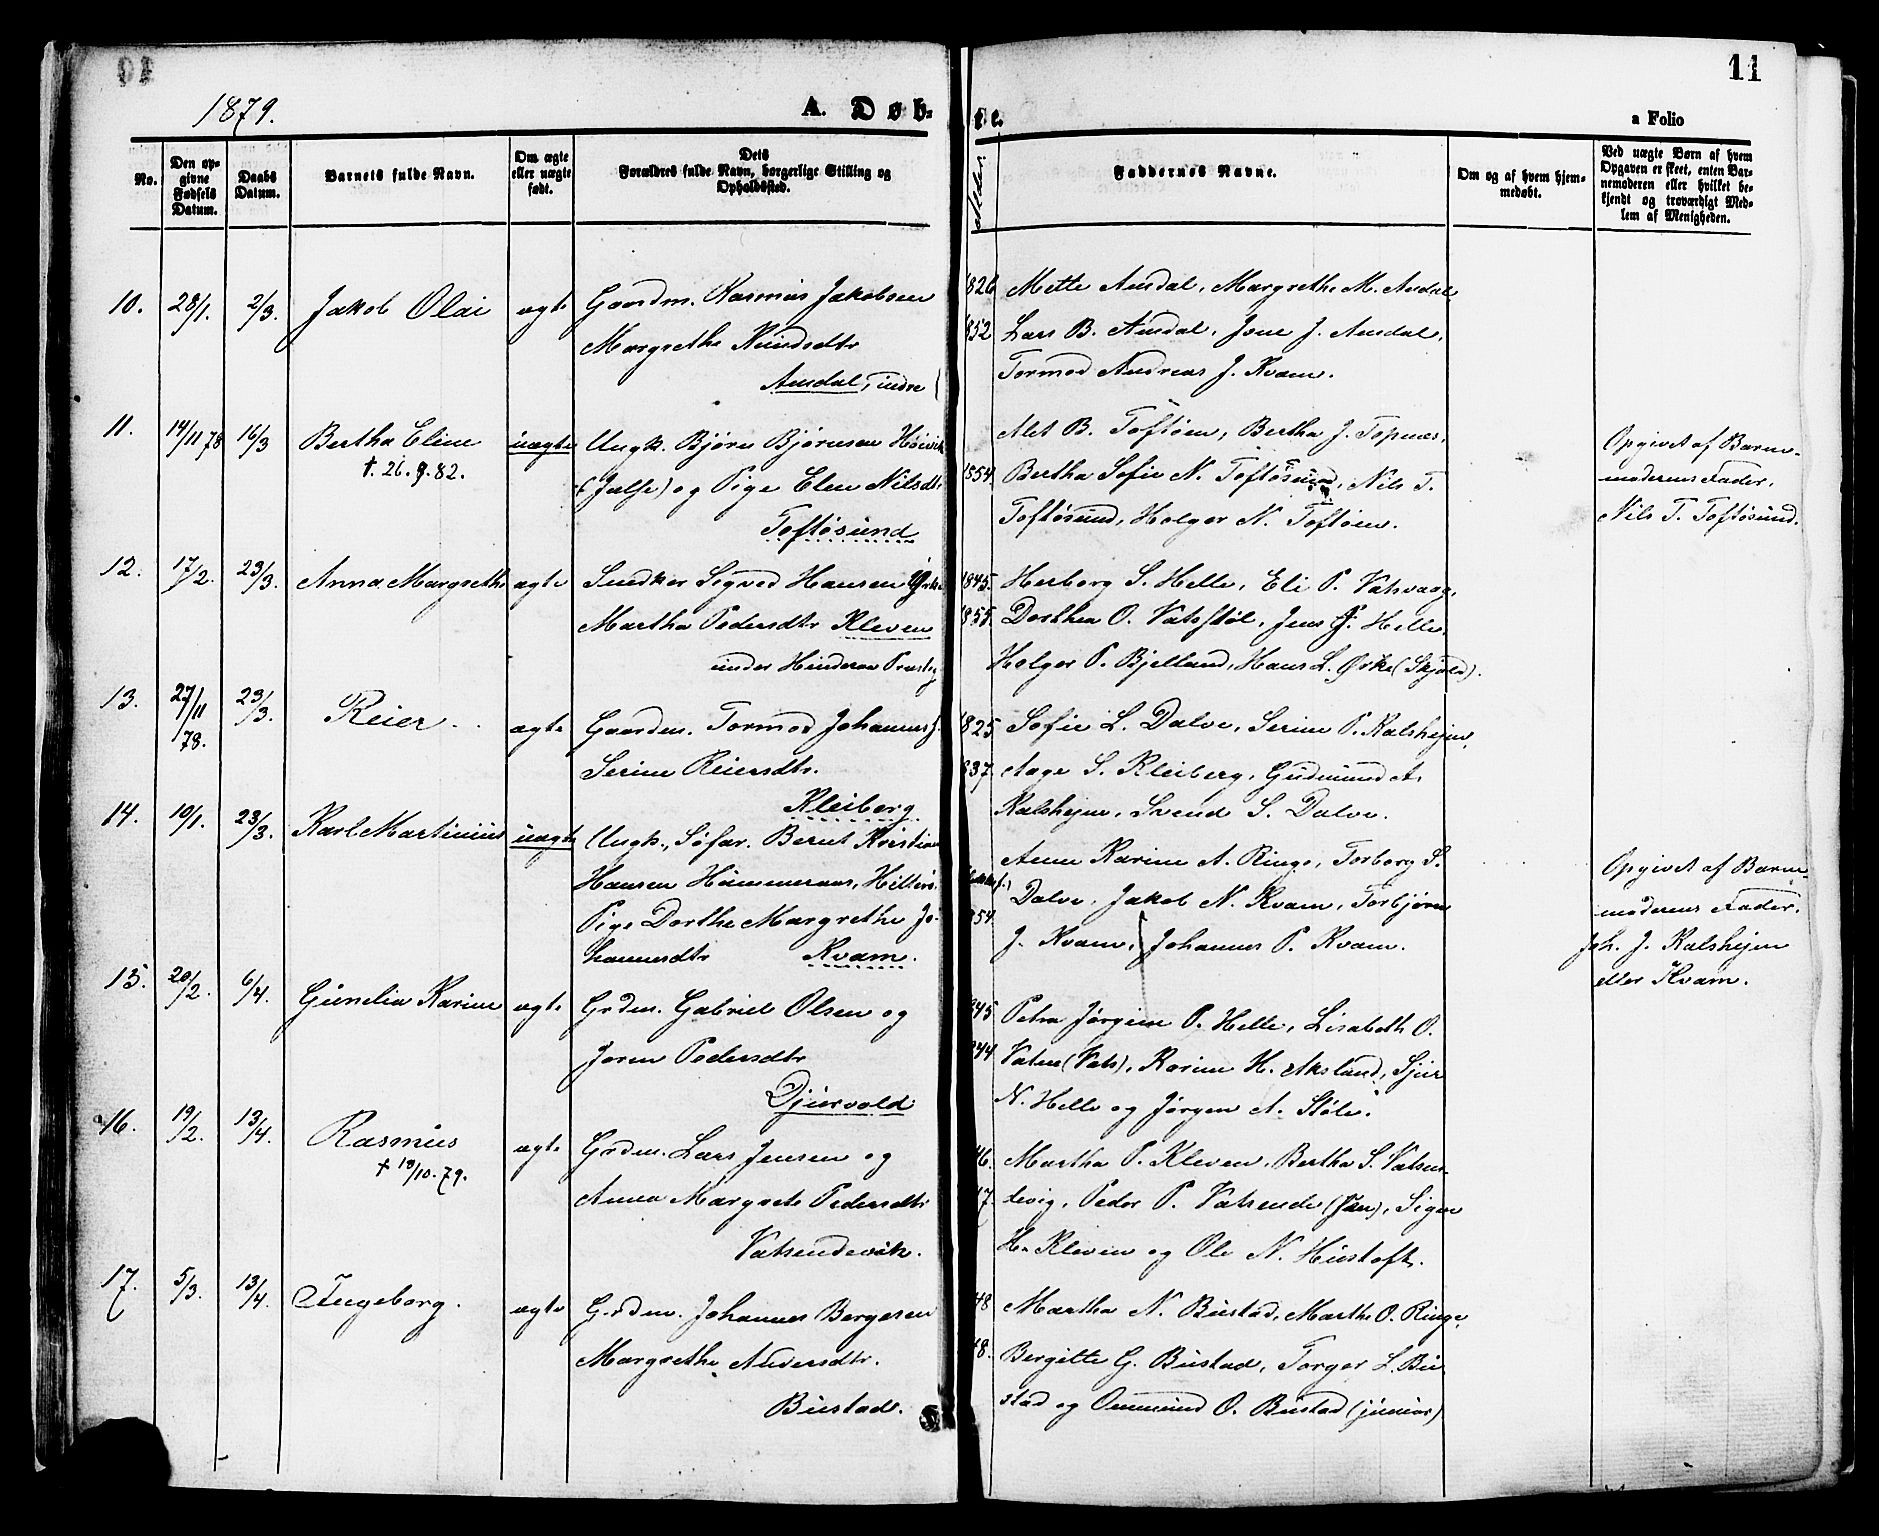 11
1879.
A. Døb-
te.
a Folio
No.
Den op-
givne
Fødsels
Datum.
Daabs
Datum.
Barnets fulde Navn.
Om ægte
eller uægte
født.
Dets
Forældres fulde Navn, borgerlige Stilling og
Opholdssted.
Faddernes Navne.
Om og af hvem hjem-
medøbt.
Ved uægte Børn af hvem
Opgaven er skeet, enten Bar-
nemoderen eller hvilket be-
kjendt og troværdigt Med-
lem af Menigheden.
10. 28/1. 2/3. Jakob Olai ægte Gaardm. Rasmus Jakobsen
Margrethe Knudsdtr
Amdal, indre
1826 Mette Amdal, Margrethe M. Amdal
1852 Lars B. Amdal, Jone J. Amdal,
Tormod Andreas J. Kvam.
11. 14/11 78 16/3 Bertha Eline uægte Ungk. Bjørn Bjørnsen Høivik
† . 26. 9. 82. (Jælse) og Pige Elen Nilsdtr
Toftøsund
Alet B. Toftøen, Bertha J. Topnes,
1854. Bertha Sofie N. Toftøsund, Nils T.
Toftøsund, Holger N. Toftøen.
Opgivet af Barne-
moderens Fader,
Nils T. Toftøsund.
12. 17/2. 23/3. Anna Margrethe ægte Snedker Sigved Hansen Ørke
Martha Pedersdtr Kleven
under Hinderaa Præsteg
1845. Herborg S. Helle, Eli P. Vatsvaag,
1855. Dorthea O. Vatsstøl, Jens J. Helle,
Holger P. Bjelland, Hans L. Ørke (Skjold).
13. 27/11 78. 23/3. Reier ægte Gaardm. Tormod Johanness.
Serine Reiersdtr.
Kleiberg
1825 Sofie L. Dalve, Serine P. Kalshejen,
1837. Aage S. Kleiberg, Gudmund A.
Kalshejen, Svend S. Dalve.
14. 10/1. 23/3. Karl Martinius uægte Ungk., Søfar. Bernt Kristian
Hansen Hammeraas, Hitterø.
Pige Dorthe Margrethe Jo-
hannesdtr Kvam.
Anne Karine A. Ringe, Torborg S.
Dalve, Jakob N. Kvam, Torbjørn
54 J. Kvam, Johannes P. Kvam.
Opgivet af Barne-
moderens Fader.
Joh. J. Kalshejen
eller Kvam.
15. 20/2. 6/4. Gunelia Karine ægte Grdm. Gabriel Olsen og
Joren Pedersdtr
Djursvold
45 Petra Jørgine P. Helle, Lisabeth O.
44 Vatne (Vats), Karine H. Aksland, Sjur
N. Helle og Jørgen A. Støle.
16. 19/2. 13/4. Rasmus ægte Grdm. Lars Jensen og
† 18/10. 79. Anna Margrete Pedersdtr
Vatsendevik.
46. Martha P. Kleven, Bertha S. Vatsen-
47. devig, Peder P. Vatsende (Jun), Sigve
H. Kleven og Ole N. Hustoft.
17. 5/3. 13/4. Ingeborg. ægte Grdm. Johannes Bergesen
Margrethe Andersdtr.
Bustad.
48 Martha N. Bustad, Marthe O. Ringe,
48. Bergitte G. Bustad, Torger L. Bu-
stad og Ommund O. Bustad (junior)